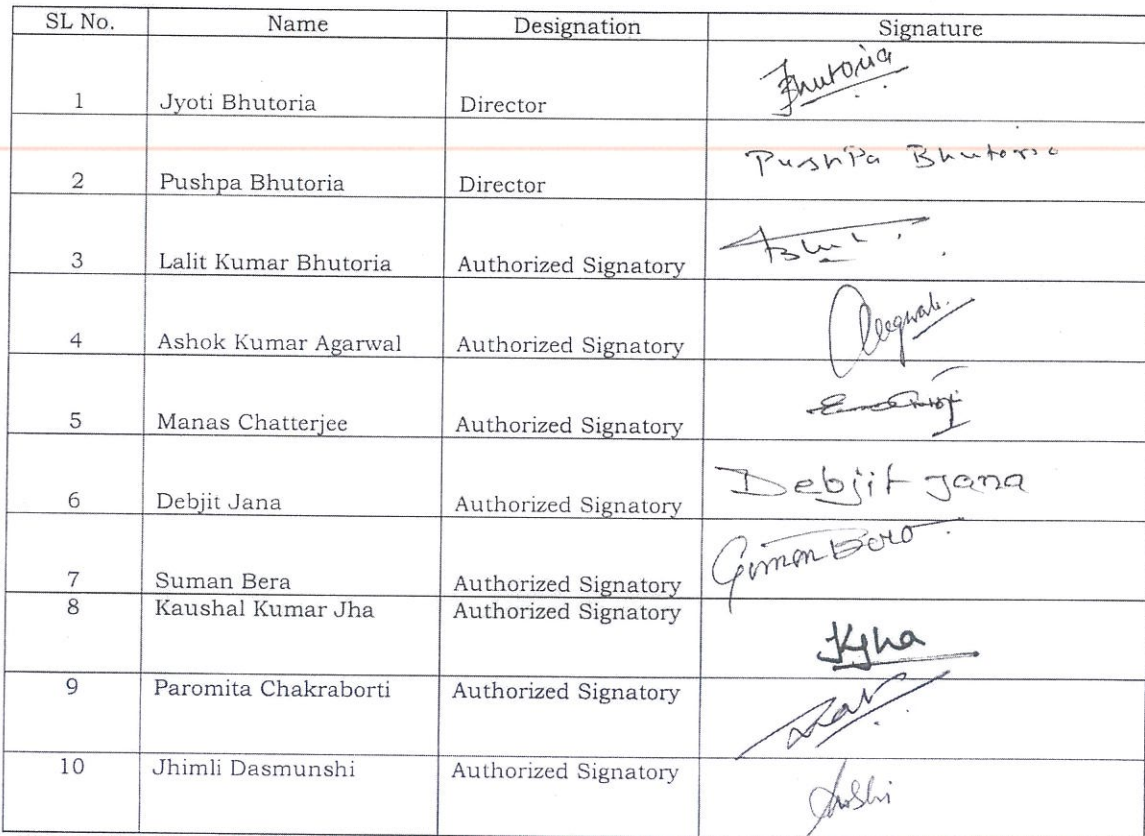 SL No. Name Designation Signature
Bhutoria
1 Jyoti Bhutoria Director
PushPa Bhutoria
2 Pushpa Bhutoria Director
3 Lalit Kumar Bhutoria Authorized Signatory
4 Ashok Kumar Agarwal Authorized Signatory
5 Manas Chatterjee Authorized Signatory
Debjit Jana
6 Debjit Jana Authorized Signatory
7 Suman Bera Authorized Signatory
8 Kaushal Kumar Jha Authorized Signatory
KJha
9 Paromita Chakraborti Authorized Signatory
10 Jhimli Dasmunshi Authorized Signatory